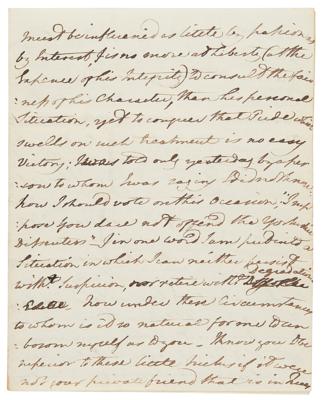 must be influenced as little by passion as
by Interest, & is no more at Liberty (at the
Expence of his Integrity) to consult the fair-
ness of his Character, than his personal
Situation, yet to conquer that Pride which
swells on such treatment is no easy
Victory; I was told only yesterday by a per-
son to whom I was saying I did not know
how I should vote on this Occasion, "I sup-
pose you dare not offend the Yorkshire
Dissenters" & in one word I am put into a
Situation in which I can neither persist
with.t Suspicion, nor retire with.t
degradation
now under these circumstances
to whom is it so natural for me to un-
bosom myself as to you. I know you to be
superior to these little tricks, if it were
not your private friend that is in